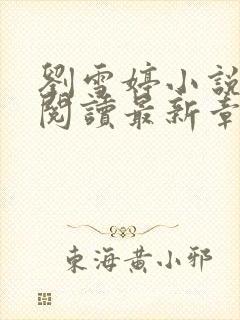 劉雪婷小說
閱讀最新章
東海黃小邪